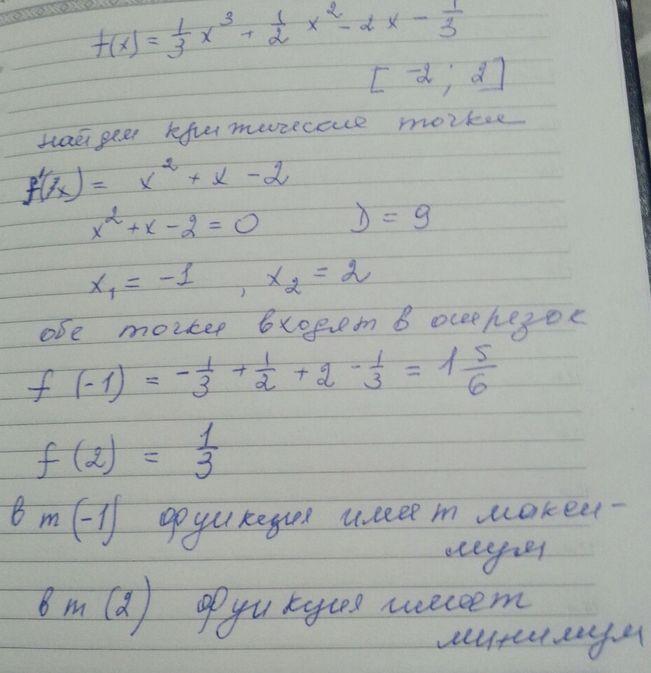 f(x) = 1/3 x³ + 1/2 x² - 2x - 1/3
[-2; 2]
найдем критические точки
f'(x) = x² + x - 2
x² + x - 2 = 0 D = 9
x₁ = -1 , x₂ = 2
обе точки входят в отрезок
f (-1) = -1/3 + 1/2 + 2 - 1/3 = 1 5/6
f (2) = 1/3
в т (-1) функция имеет макси-
мум
в т (2) функция имеет
минимум